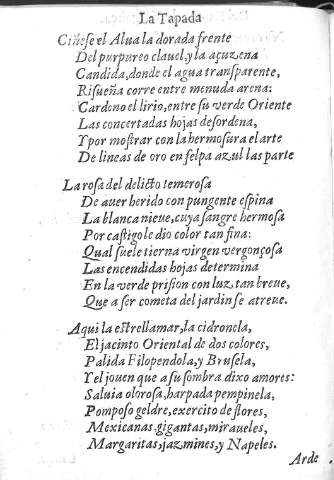 La Tapada
Ciñese el Alua la dorada frente
Del purpureo clauel, y la açuzena
Candida, donde el agua transparente,
Risueña corre entre menuda arena:
Cardeno el lirio, entre su verde Oriente
Las concertadas hojas desordena,
Y por mostrar con la hermosura el arte
De lineas de oro en felpa azul las parte
La rosa del delicto temerosa
De auer herido con pungente espina
La blanca nieue, cuya sangre hermosa
Por castigo le dio color tan fina:
Qual suele tierna virgen vergonçosa
Las encendidas hojas determina
En la verde prision con luz tan breue,
Que a ser cometa del jardin se atreue.
Aqui la estrellamar, la cidronela,
El jacinto Oriental de dos colores,
Palida Filopendola, y Brusela,
Y el jouen que a su sombra dixo amores:
Saluia olorosa, harpada pempinela,
Pomposo geldre, exercito de flores,
Mexicanas, gigantas, miraueles,
Margaritas, jazmines, y Napeles.
Arde